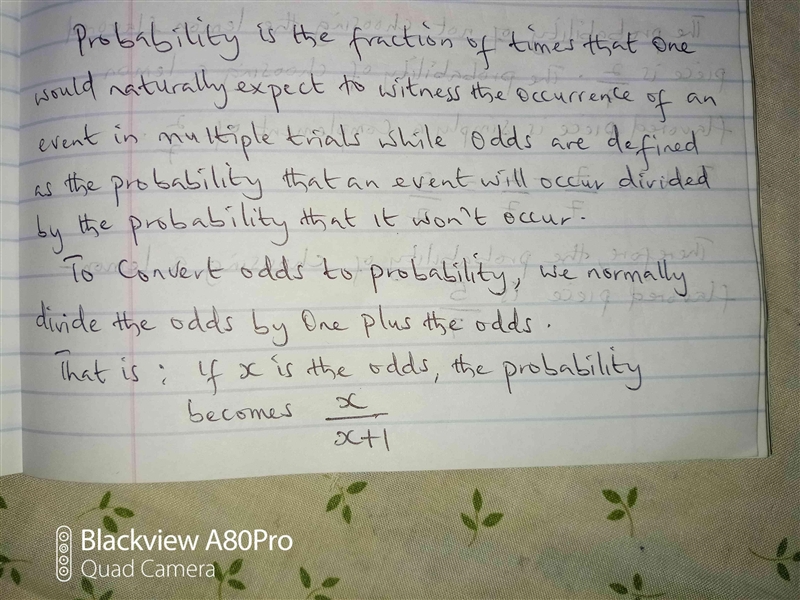 Probability is the fraction of times that One
would naturally expect to witness the occurrence of an
event in multiple trials while Odds are defined
as the probability that an event will occur divided
by the probability that it won't occur.
To Convert odds to probability, we normally
divide the odds by One plus the odds.
That is : If x is the odds, the probability
becomes x
x+1
Blackview A80Pro
Quad Camera